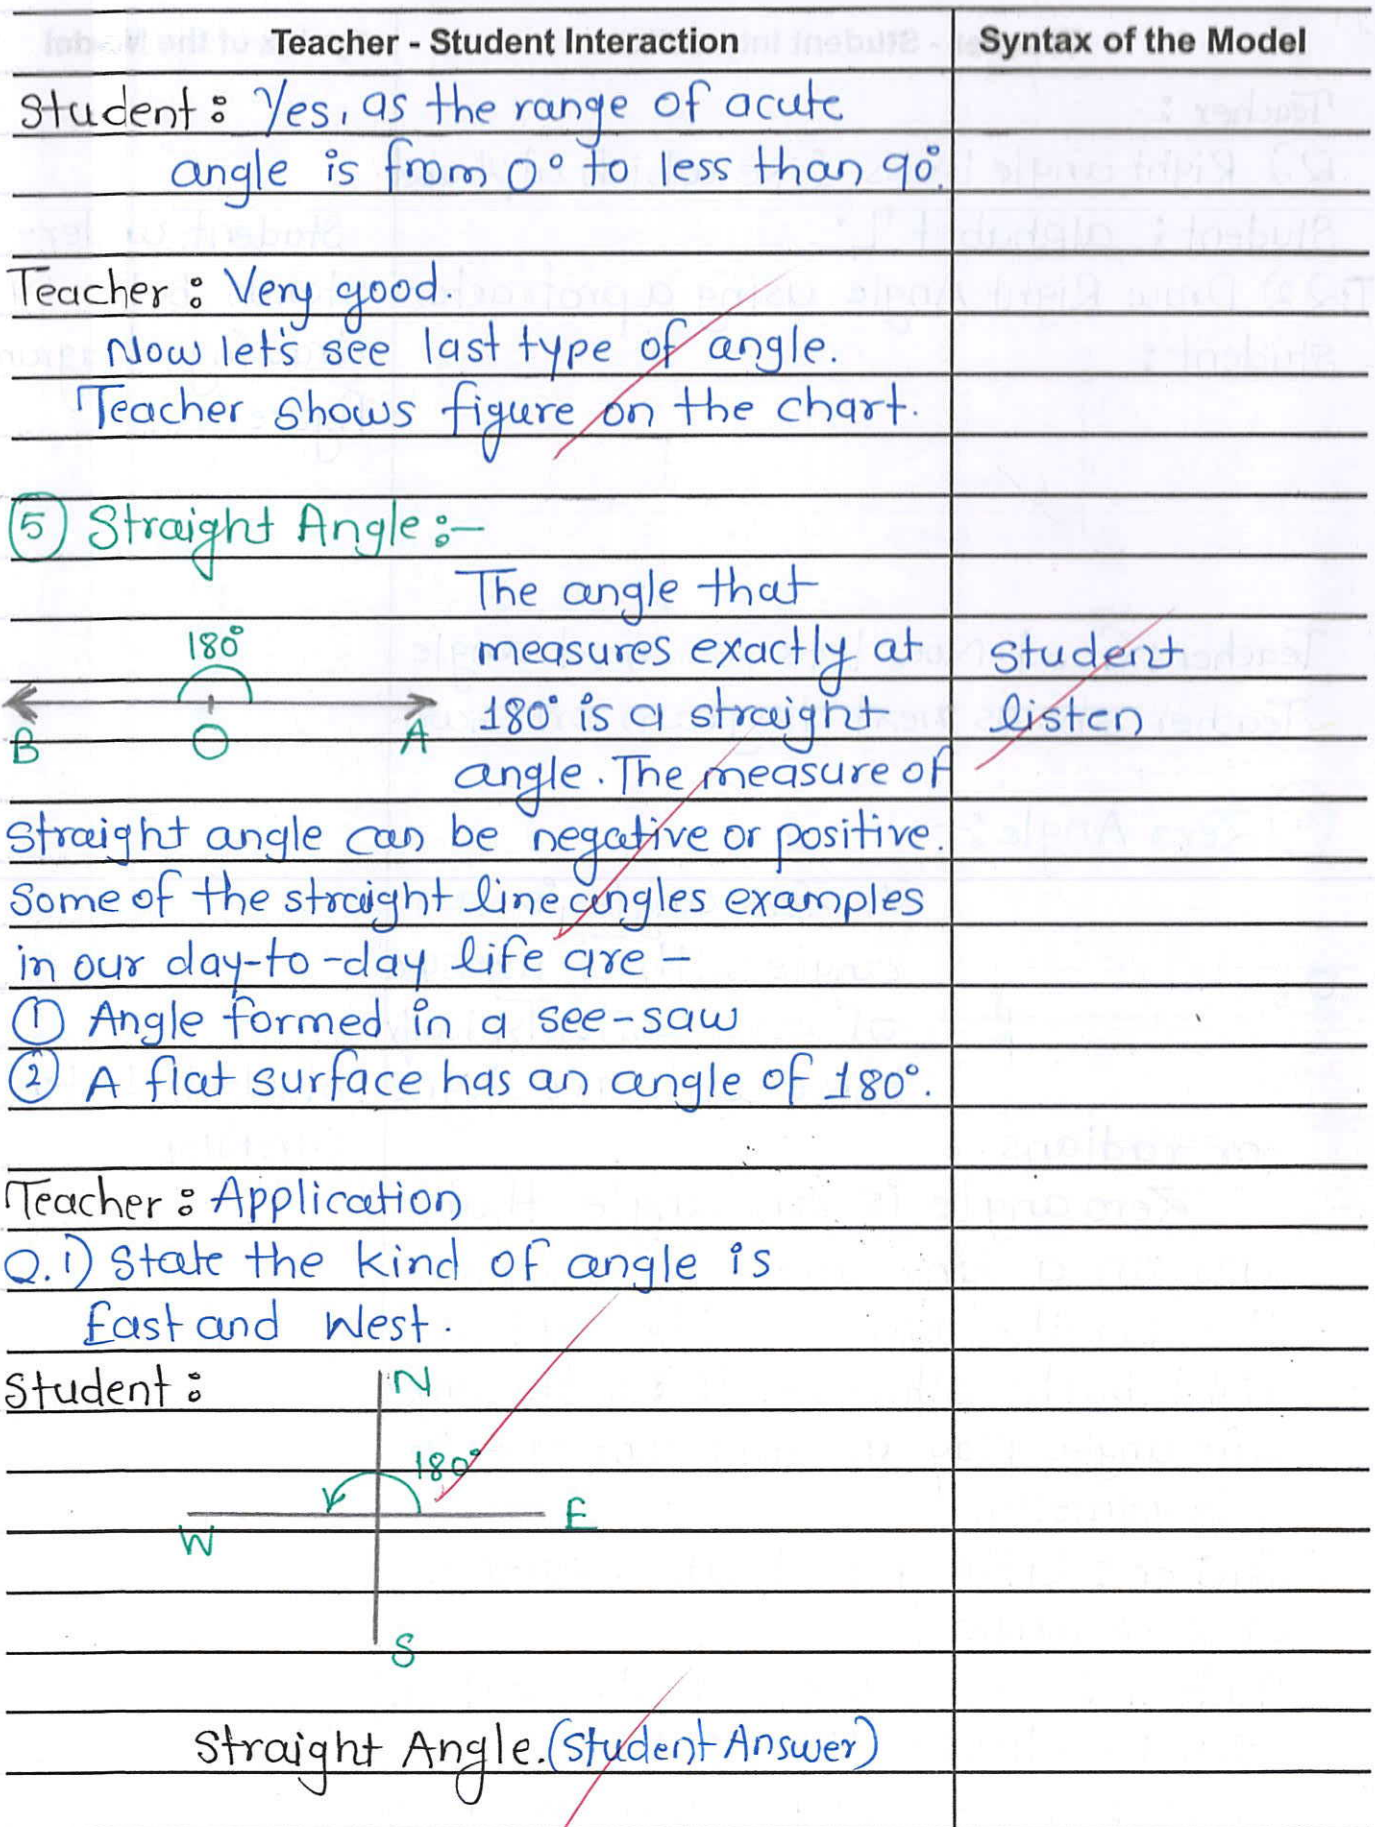 Teacher - Student Interaction
Syntax of the Model
Student: Yes, as the range of acute
angle is from 0° to less than 90°.
Teacher: Very good.
Now let's see last type of angle.
Teacher shows figure on the chart.
5 Straight Angle:-
The angle that
180°
measures exactly at
B O A
180° is a straight
angle. The measure of
Student
listen
straight angle can be negative or positive.
Some of the straight line angles examples
in our day-to-day life are -
1 Angle formed in a see-saw
2 A flat surface has an angle of 180°.
Teacher: Application
Q.1) State the kind of angle is
East and West.
Student:
N
180°
W E
S
Straight Angle. (Student Answer)